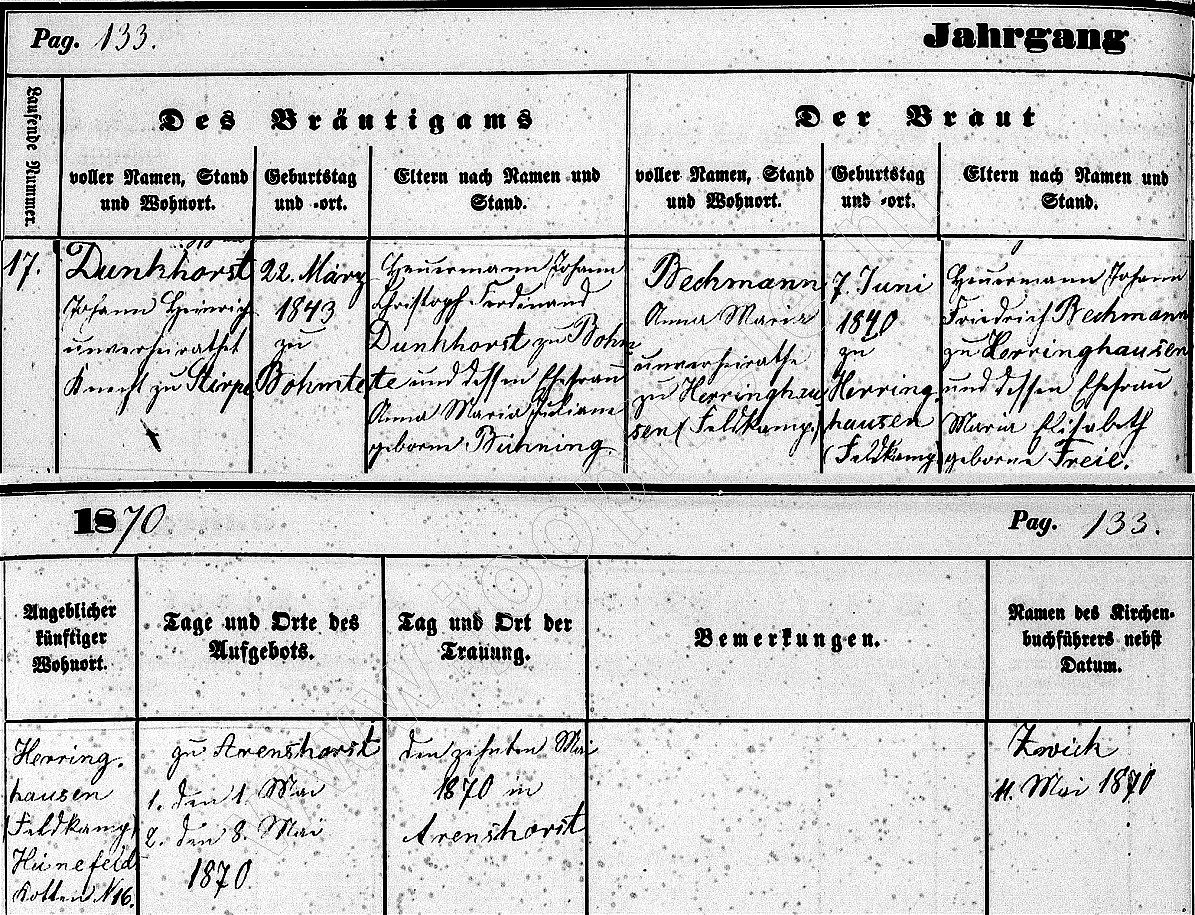 Pag. 133.
Jahrgang
Laufende Nummer.
Des Bräutigams
Der Braut
voller Namen, Stand und Wohnort.
Geburtstag und -ort.
Eltern nach Namen und Stand.
voller Namen, Stand und Wohnort.
Geburtstag und -ort.
Eltern nach Namen und Stand.
17.
Dunkhorst
Johann Heinrich
unverheirathet
Knecht zu Stirpe
22. März
1843
zu
Bohmte
Heuermann Johann
Christoph Ferdinand
Dunkhorst zu Bohm
te und dessen Ehefrau
Anna Maria Juliane
geborne Bühning
Bechmann
Anna Maria
unverheirathe
zu Herringhau-
sen (Feldkamp.)
7. Juni
1840
zu
Herring
hausen
(Feldkamp)
Heuermann Johann
Friedrich Bechmann
zu Herringhausen
und dessen Ehefrau
Maria Elisabeth
geborne Freie.
1870
Pag. 133.
Angeblicher
künftiger
Wohnort.
Tage und Orte des
Aufgebots.
Tag und Ort der
Trauung.
Bemerkungen.
Namen des Kirchen-
buchführers nebst
Datum.
Herring-
hausen
(Feldkamp)
Hünefeld
Kotten N 16.
zu Arenshorst
1. den 1. Mai
2. den 8. Mai
1870
den zehnten Mai
1870 in
Arenshorst
Zwick
11. Mai 1870